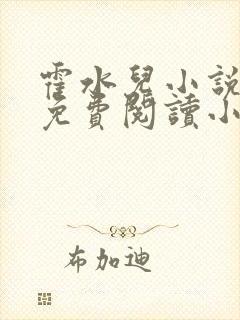 霍水兒小說
免費閱讀小
布加迪